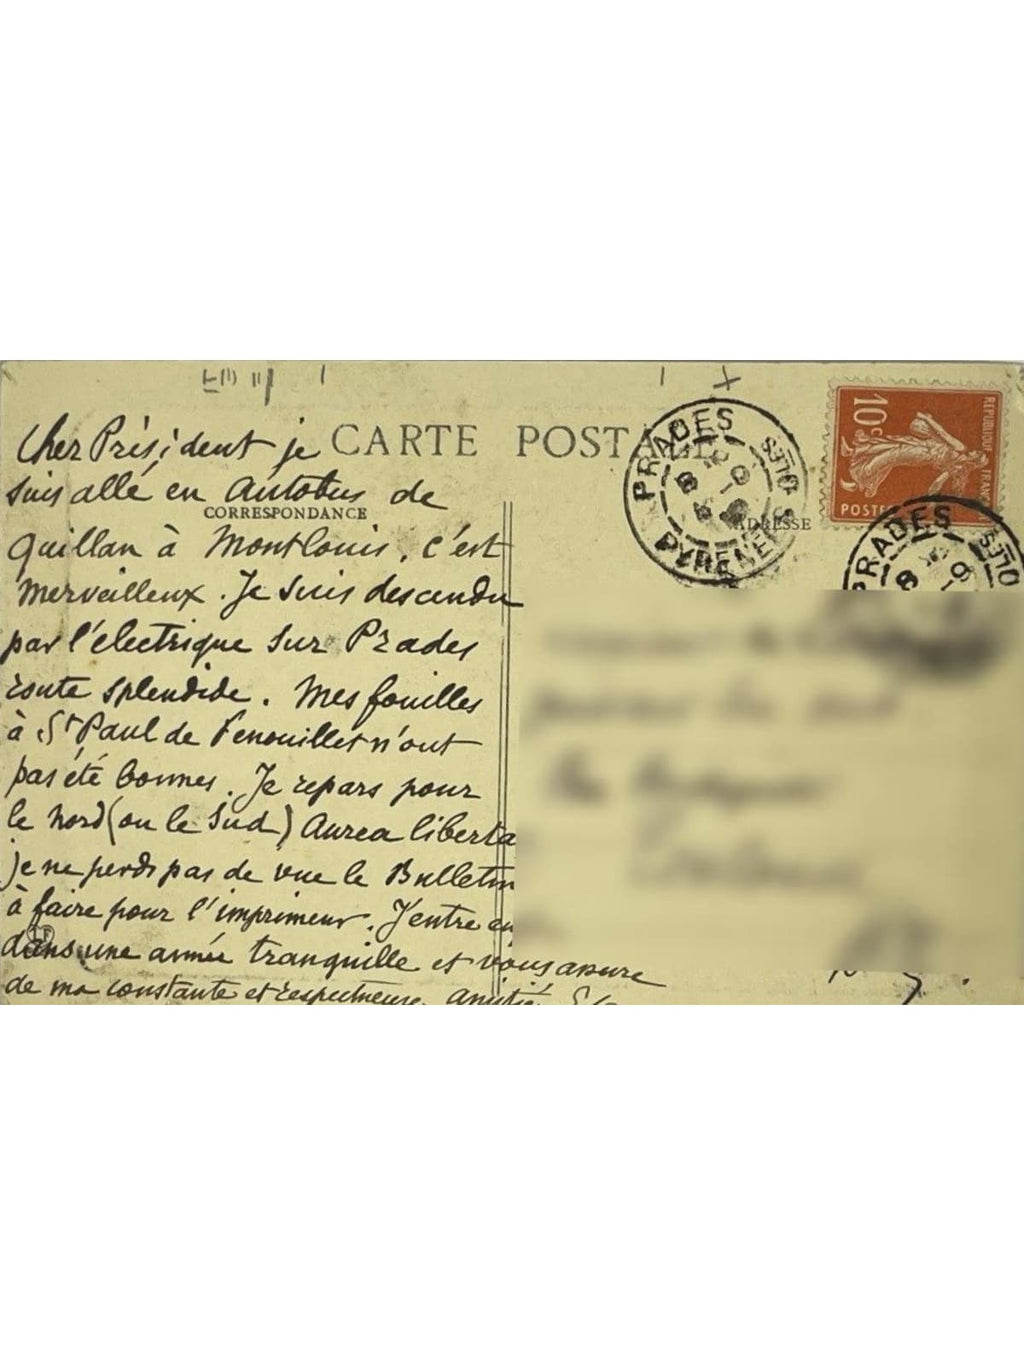 CARTE POSTALE
CORRESPONDANCE
ADRESSE
Cher Président je
suis allé en Autobus de
Quillan à Montlouis, c'est
merveilleux. Je suis descendu
par l'électrique sur Prades
route splendide. Mes fouilles
à St Paul de Fenouillet n'ont
pas été bonnes. Je repars pour
le nord (ou le Sud) Aurea liberta
je ne perds pas de vue le Bulletin
à faire pour l'imprimeur. J'entre en
dans une année tranquille et vous assure
de ma constante et respectueuse amitié
PRADES
PYRENEES
10c
REPUBLIQUE FRANC
POSTE
PRADES
LF